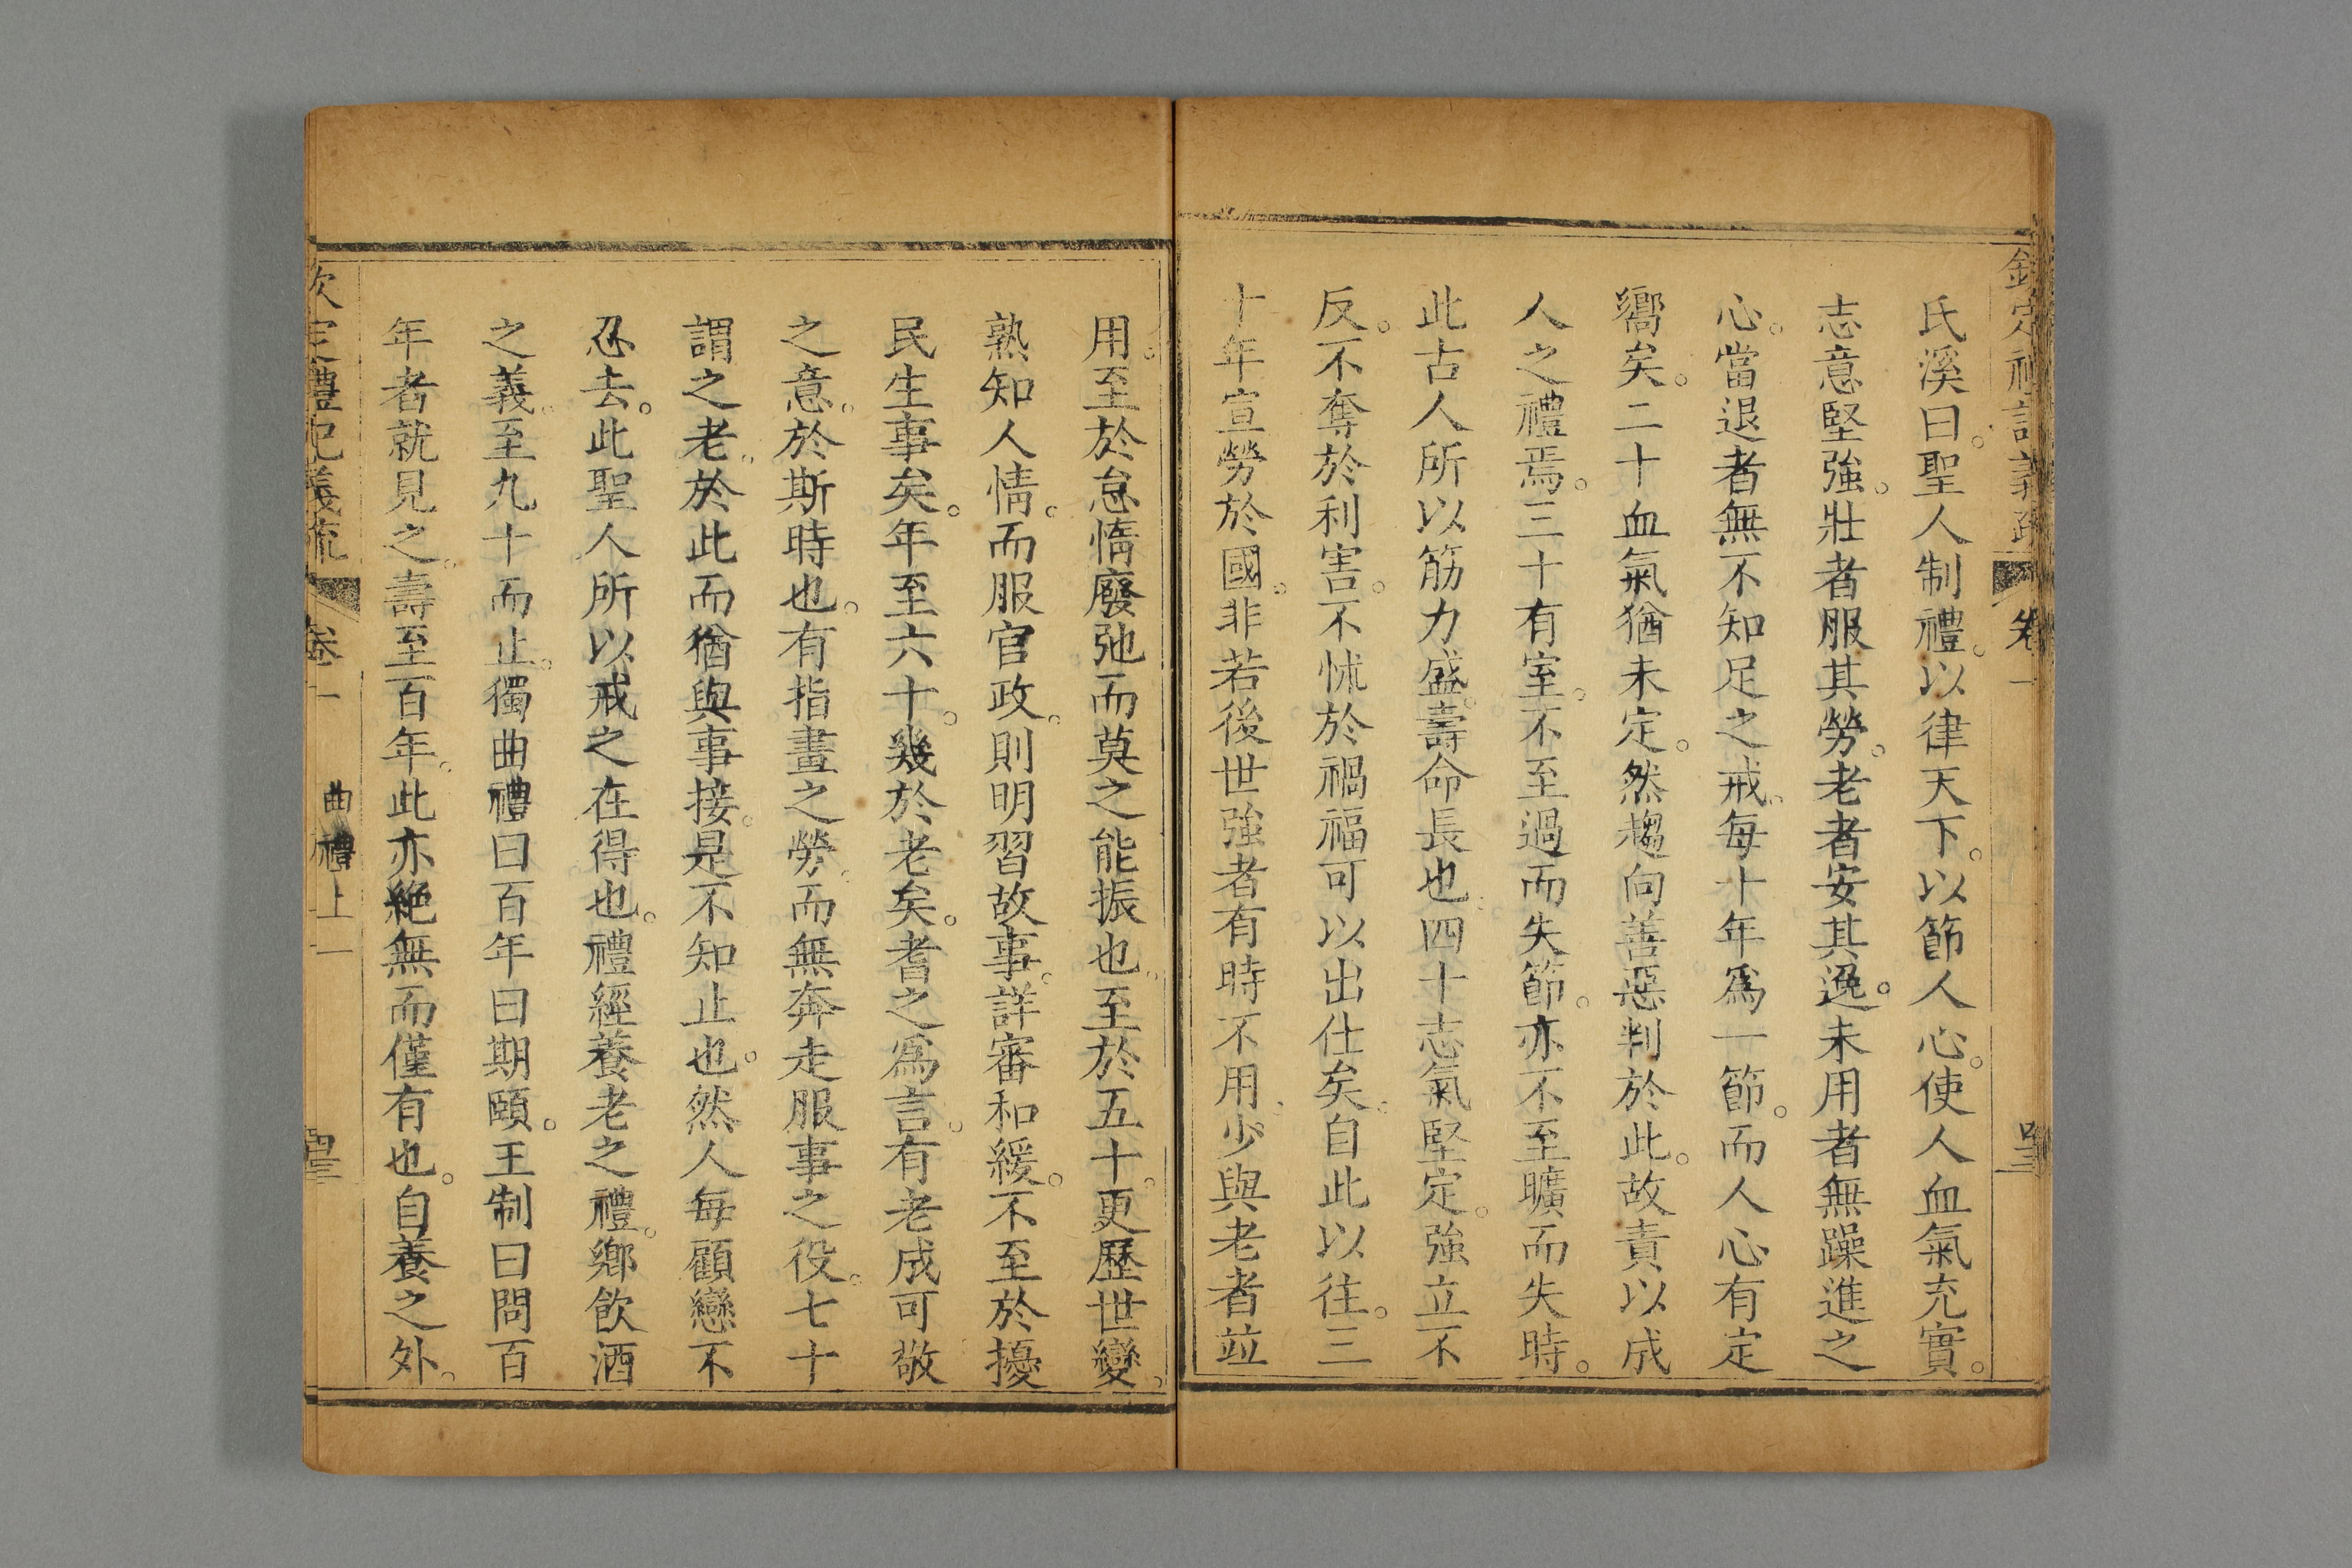 欽定禮記義疏 卷一
氏溪曰。聖人制禮。以律天下。以節人心。使人血氣充實。
志意堅強。壯者服其勞。老者安其逸。未用者無躁進之
心。當退者無不知足之戒。每十年爲一節。而人心有定
嚮矣。二十血氣猶未定。然趨向善惡判於此。故責以成
人之禮焉。三十有室。不至過而失節。亦不至曠而失時。
此古人所以筋力盛。壽命長也。四十志氣堅定。強立不
反。不奪於利害。不怵於禍福。可以出仕矣。自此以往。三
十年宣勞於國。非若後世強者有時不用。少與老者竝
用。至於怠惰廢弛而莫之能振也。至於五十。更歷世變。
熟知人情。而服官政。則明習故事。詳審和緩。不至於擾
民生事矣。年至六十。幾於老矣。耆之爲言。有老成可敬
之意。於斯時也。有指畫之勞。而無奔走服事之役。七十
謂之老。於此而猶與事接。是不知止也。然人每顧戀不
忍去。此聖人所以戒之在得也。禮經養老之禮。鄉飲酒
之義。至九十而止。獨曲禮曰百年曰期頤。王制曰問百
年者就見之。壽至百年。此亦絶無而僅有也。自養之外。
欽定禮記義疏 卷一 曲禮上一